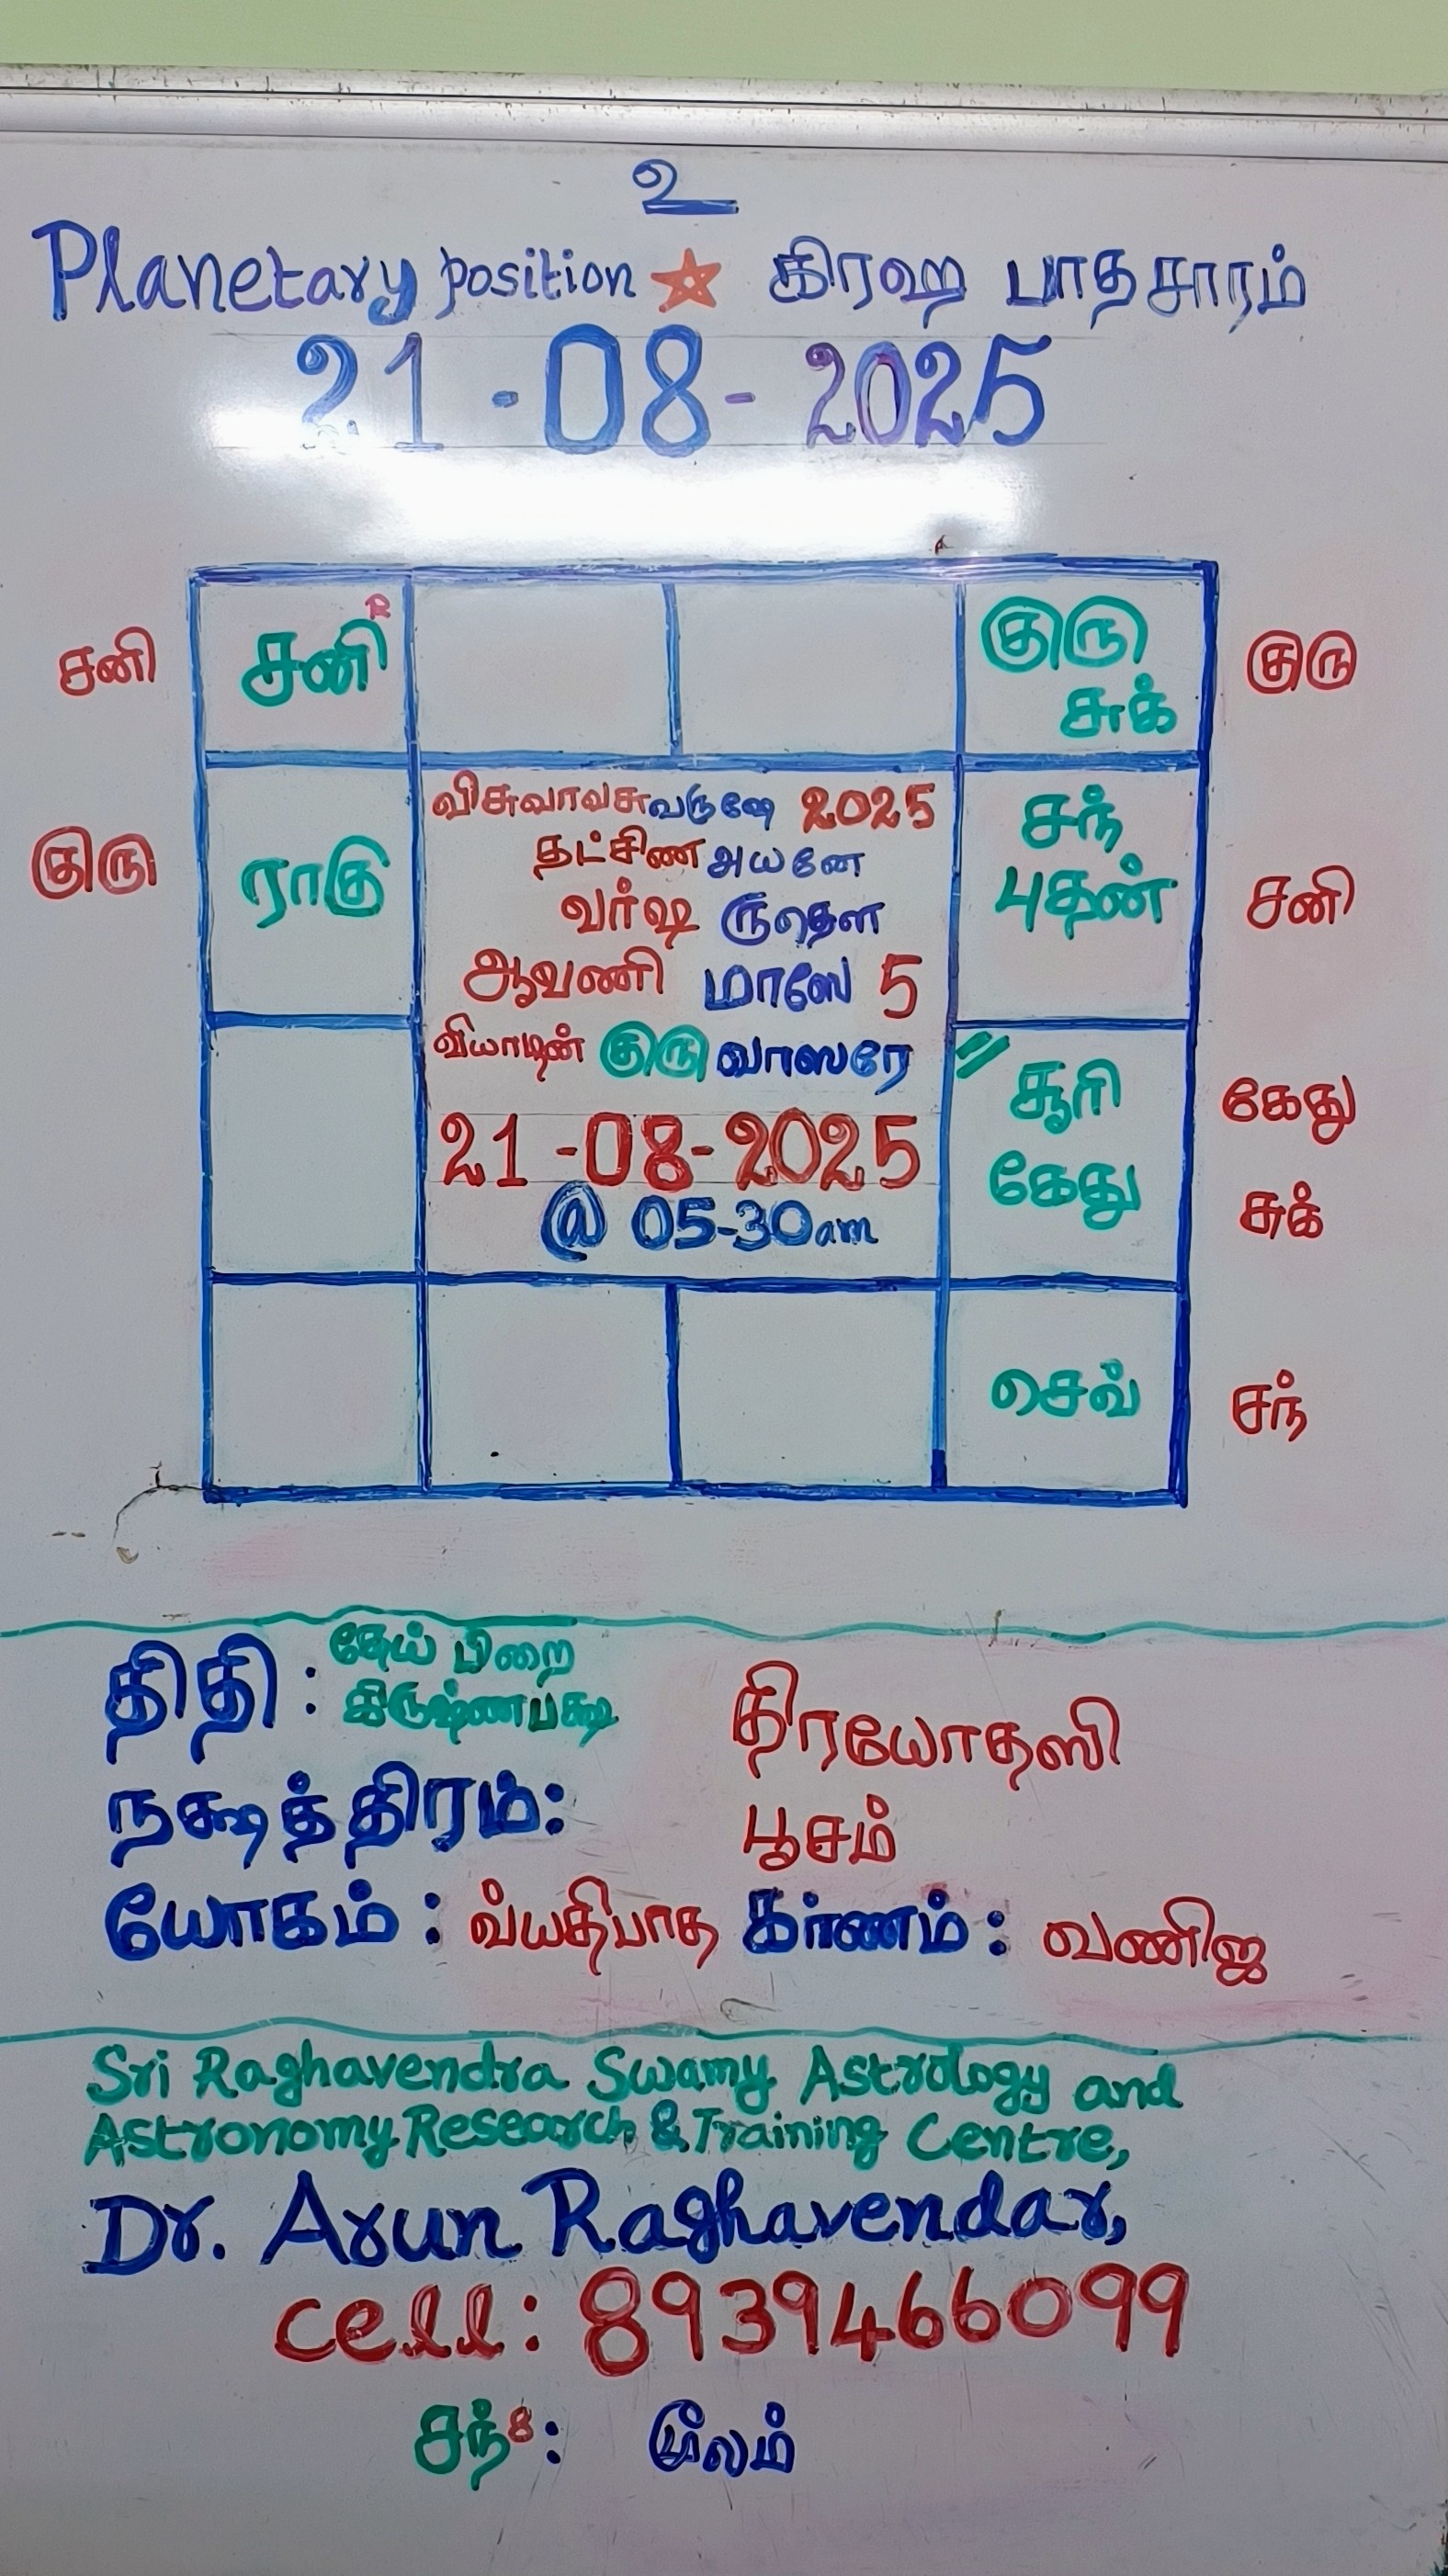 உ
Planetary position ☆ கிரஹ பாதசாரம்
21-08-2025
சனி சனி R குரு சுக் குரு
குரு ராகு சந் புதன் சனி
விசுவாவசுவருஷே 2025
தட்சிண அயனே
வர்ஷ ருதௌ
ஆவணி மாஸே 5
வியாழன் குரு வாஸரே
21-08-2025
@ 05-30am
சூரி கேது கேது சுக்
செவ் சந்
திதி : தேய் பிறை கிருஷ்ணபக்ஷ திரயோதஸி
நக்ஷத்திரம்: பூசம்
யோகம் : வ்யதிபாத கர்ணம் : வணிஜ
Sri Raghavendra Swamy Astrology and
Astronomy Research & Training Centre,
Dr. Arun Raghavendar,
cell: 8939466099
சந்8: மூலம்